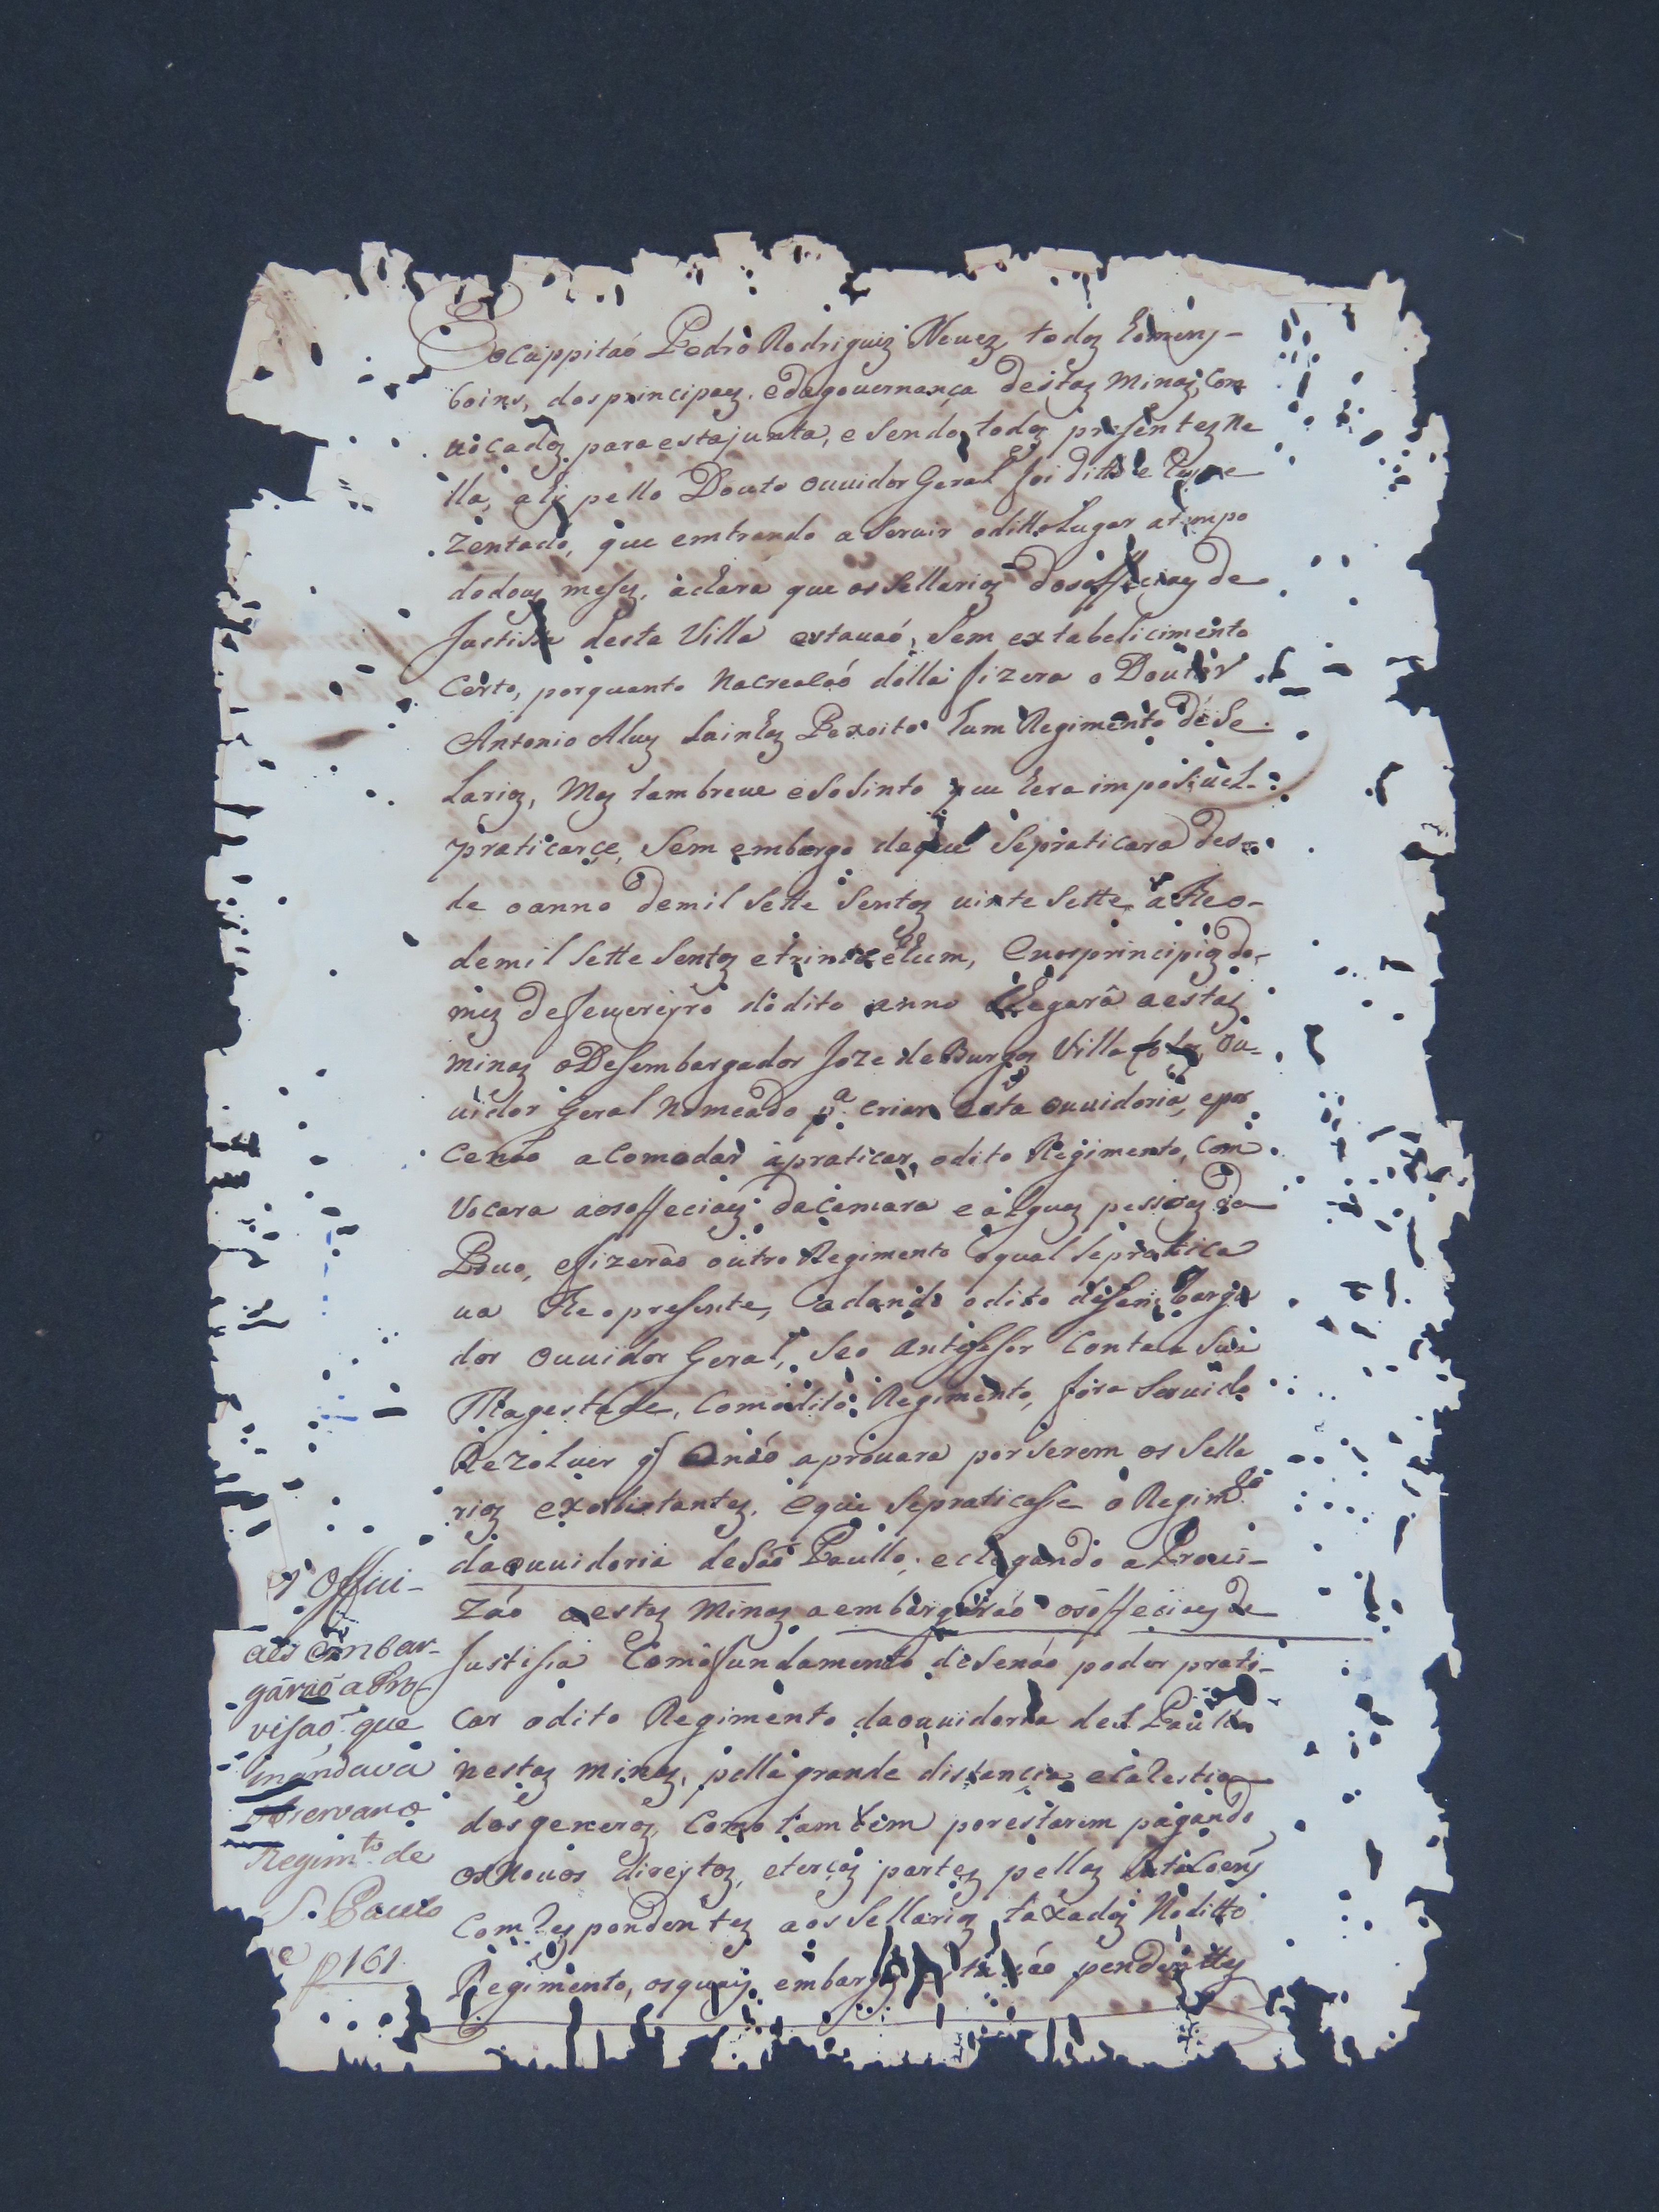 ocappitaõ Pedro Rodriguiz Nevez, todos homens-
boins, dos principaes. e da gouernança destas Minas, con
uocados para esta junta, e sendo todos presentes ne
lla, aly pello Douto ouuidor Geral foi ditto e
zentado, que emtrando a seruir oditto Lugar atempo
dedous meses, achara que os sellarios dos offeciaes de
Justissa desta Villa estauaó, sem extabelicimento
certo, porquanto nacreacaó della fizera o Doutor
Antonio Aluz Lainhas Pexoito hum Regimento de Se
Larios, Mas tambreue esosinto que hera imposiuel-
praticarçe, sem embargo deque sepraticara des-
de oanno demil sette sentos uinte sette athe o-
demil sette sentos etrinta ehum, enosprincipios do-
mes defeuereyro do dito anno chegara aestas
minas oDesembargador Joze de Burgos Villa Lobos, ou-
uidor Geral nomeado pa. criar esta ouuidoria, epor
cenão acomodar apraticar odito Regimento, com
vocara aosoffeciaes dacamara ealguas pessoas do
Pouo, efizerão outro Regimento oqual sepratica
ua the opresente, edando odito desembarga
dor ouuidor Geral, seo antessessor conta a Sua
Magestade, comodito Regimento, fora seruido
Rezoluer q' onáo aprouara porserem os sella
rios exorbitantes. eque sepraticasse o Regimto
daouuidoria deSaó Paullo, echegando aProui-
záo aestas Minas aembargaráo osoffeciaes de
Justissa comofundamento desenáo poder prati-
car odito Regimento daouuidoria deS. Paullo
nestas minas, pella grande distancia ecarestia
dosgeneros, como tambem porestarem pagando
osNouos direytos, eterças partes pellas
Comrespondentes aossellarios taxados noditto
Regimento, osquais embargos estauáo pendenttes
Offici-
aes embar-
gárão a Pro-
visaõ, que
mandava
observar o
Regimto de
S. Paulo
f 161